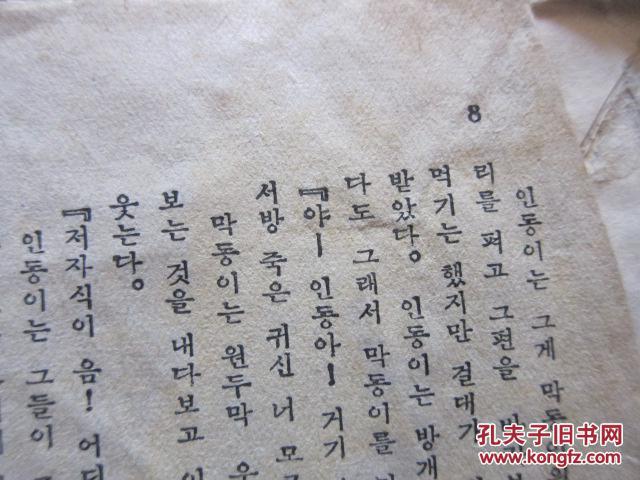 8
인동이는 그게 막동이의
리를 펴고 그편을 바라보
먹기는 했지만 걸대가
받았다。 인동이는 방개
다도 그래서 막동이를
『야ー 인동아ー 거기
서방 죽은 귀신 너 모
막동이는 원두막 우
보는 것을 내다보고
웃는다。
『저자식이 음! 어디
인동이는 그들이
孔夫子旧书网
www.kongfz.com